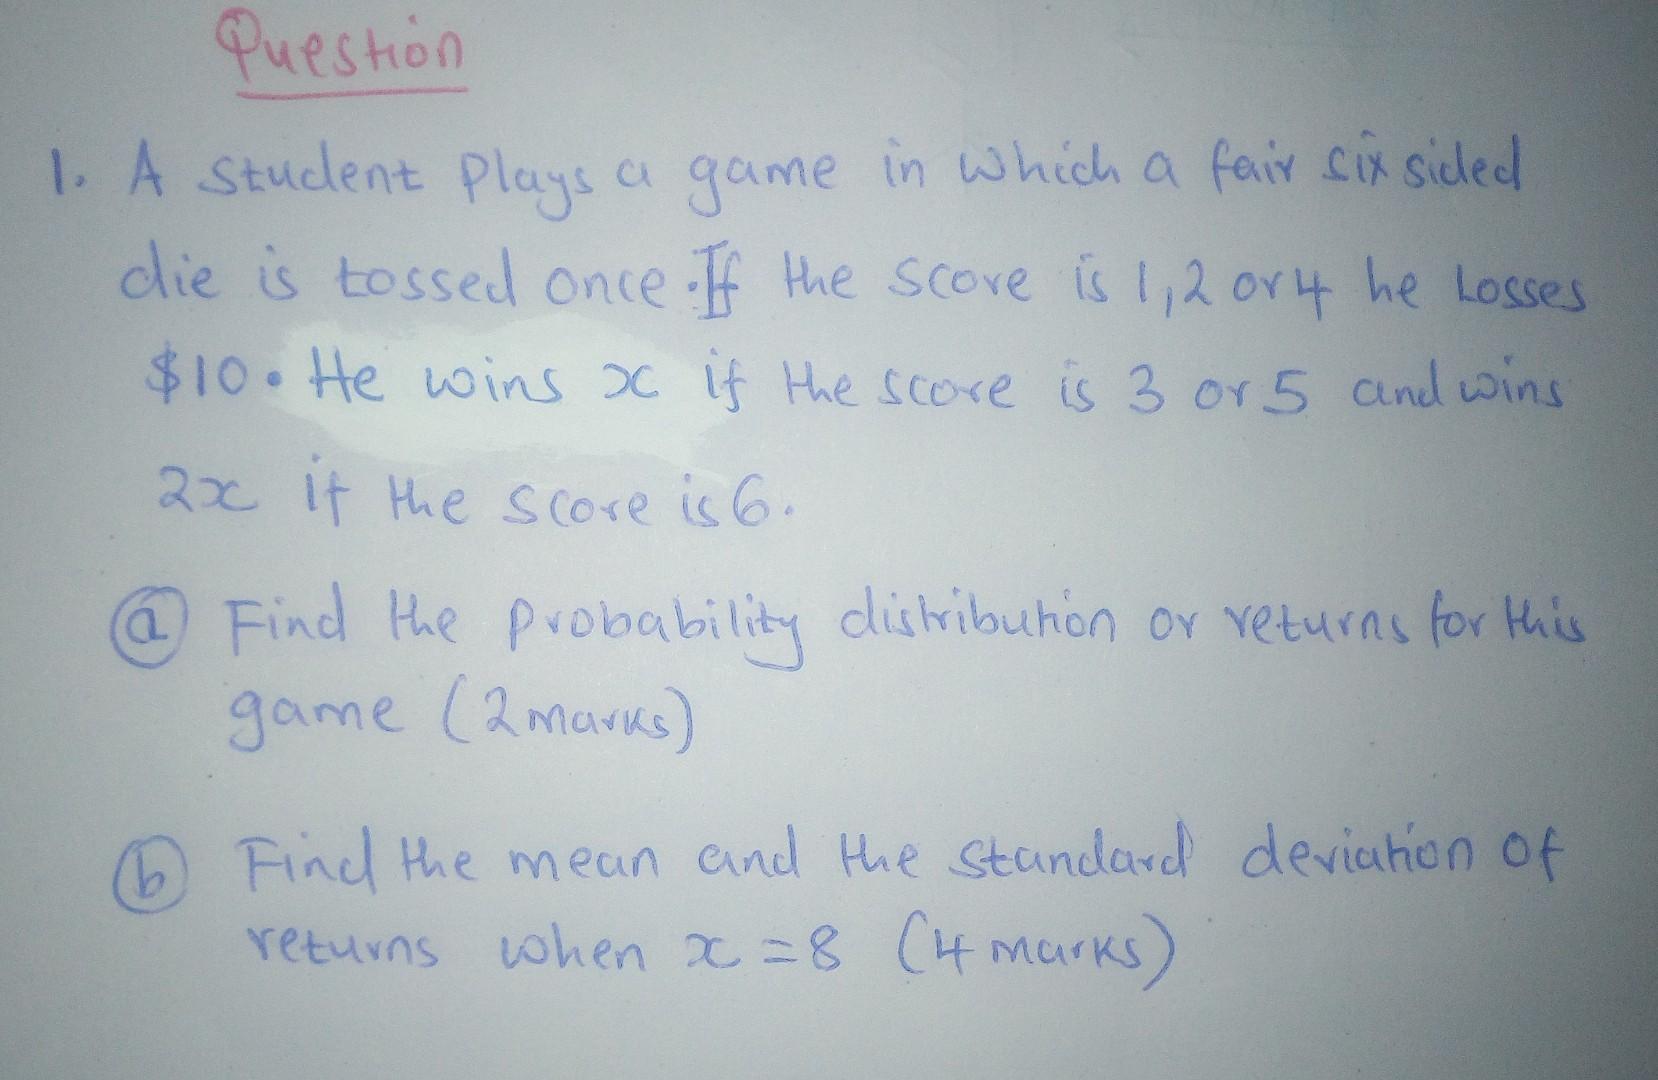 Question
1. A student plays a game in which a fair six sided
die is tossed once. If the score is 1,2 or 4 he losses
$10. He wins x if the score is 3 or 5 and wins
2x if the score is 6.
(a) Find the probability distribution or returns for this
game (2 marks)
(b) Find the mean and the standard deviation of
returns when x = 8 (4 marks)